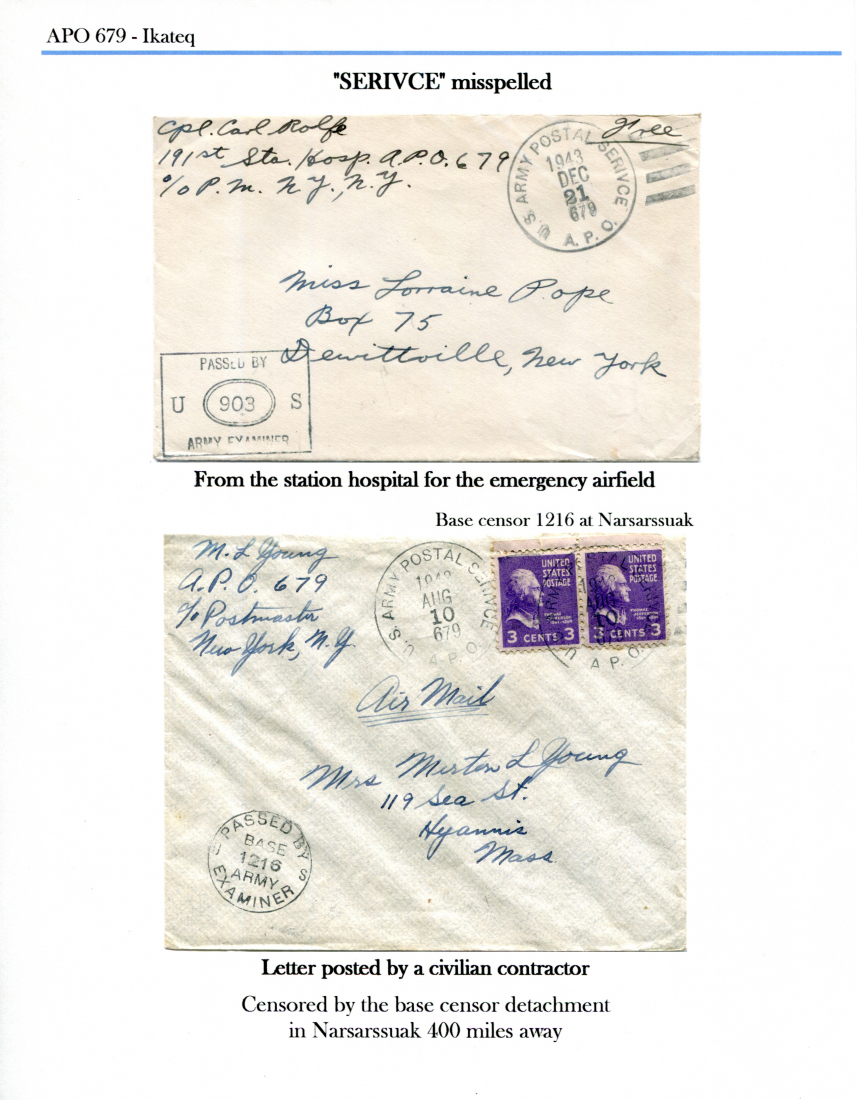 APO 679 - Ikateq
"SERIVCE" misspelled
Cpl. Carl Rolfe
191st Sta. Hosp. A.P.O. 679
c/o P.M. N.Y., N.Y.
Free
U.S. ARMY POSTAL SERIVCE
1943
DEC
21
679
A.P.O.
Miss Lorraine Pope
Box 75
Dewittville, New York
PASSED BY
U 903 S
ARMY EXAMINER
From the station hospital for the emergency airfield
Base censor 1216 at Narsarssuak
M. L. Young
A.P.O. 679
c/o Postmaster
New York, N.Y.
U.S. ARMY POSTAL SERIVCE
AUG
10
679
A.P.O.
UNITED
STATES
POSTAGE
3 CENTS 3
UNITED
STATES
POSTAGE
3 CENTS 3
A.P.O.
Air Mail
Mrs Merton L Young
119 Sea St.
Hyannis
Mass.
PASSED BY
BASE
1216
ARMY
EXAMINER
S
Letter posted by a civilian contractor
Censored by the base censor detachment
in Narsarssuak 400 miles away